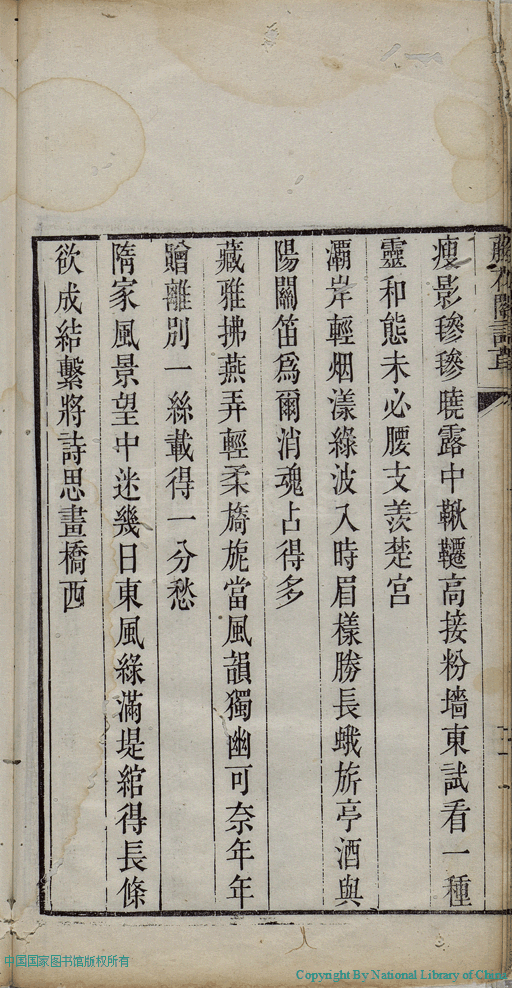 閣詩草
瘦影毿毿曉露中鞦韆高接粉墻東試看一種
靈和態未必腰支羨楚宮
灞岸輕烟漾綠波入時眉樣勝長蛾旂亭酒與
陽關笛爲爾消魂占得多
藏雅拂燕弄輕柔旖旎當風韻獨幽可奈年年
贈離別一絲載得一分愁
隋家風景望中迷幾日東風綠滿堤綰得長條
欲成結繫將詩思畫橋西
中国国家图书馆版权所有
Copyright By National Library of China